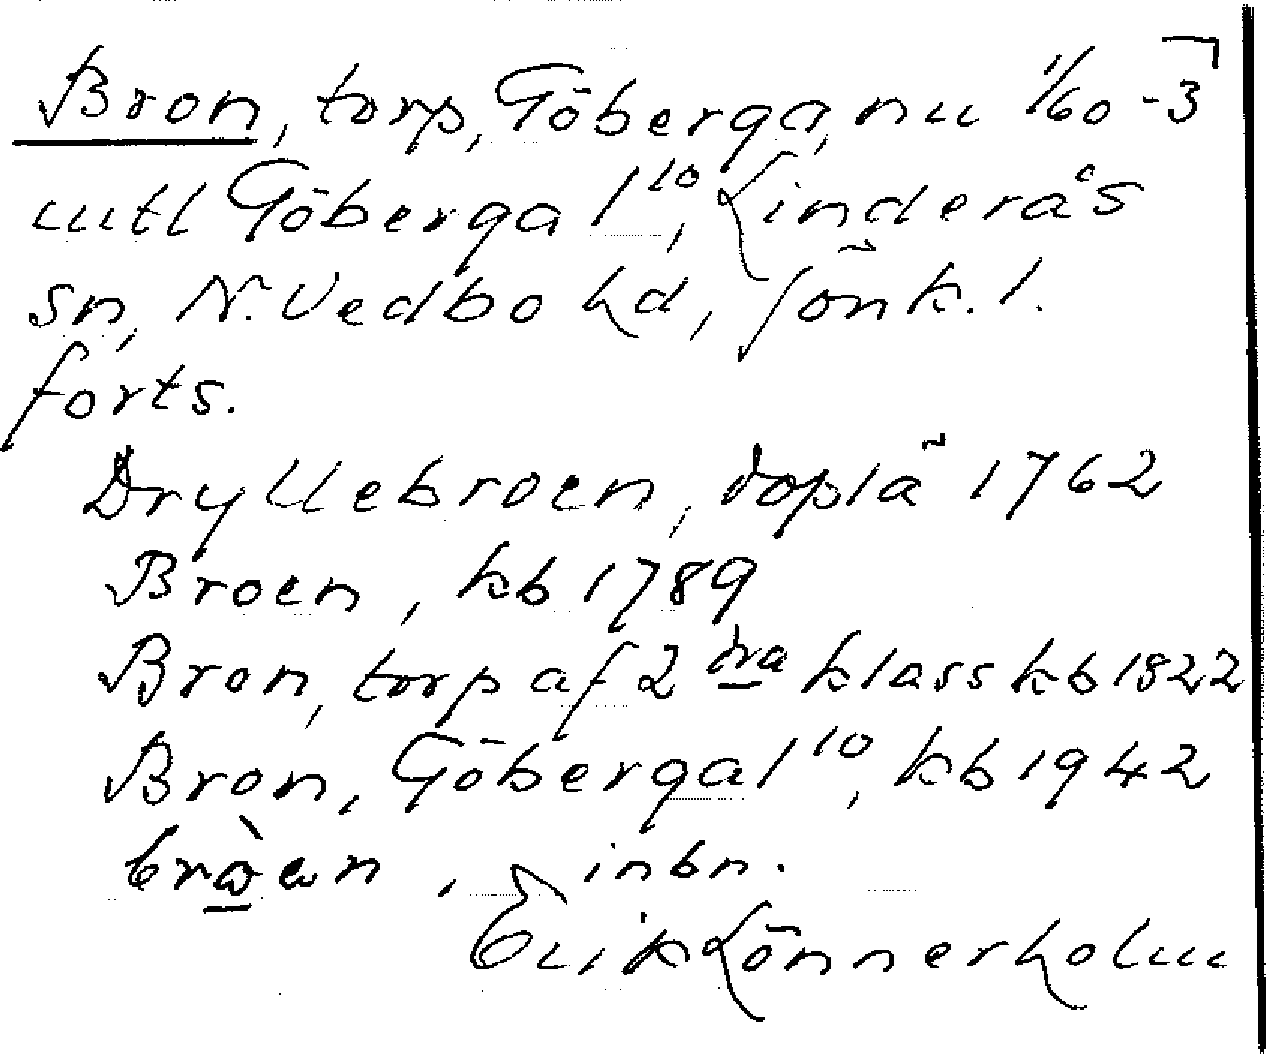 Bron, torp, Göberga, nu 1/60-3
utl Göberga 1¹⁰, Linderås
sn, N. Vedbo hd, Jönk. l.
forts.
Dryllebroen, doplä 1762
Broen, kb 1789
Bron, torp af 2dra klass kb 1822
Bron, Göberga 1¹⁰, kb 1942
inbn.
Erik Lönnerholm